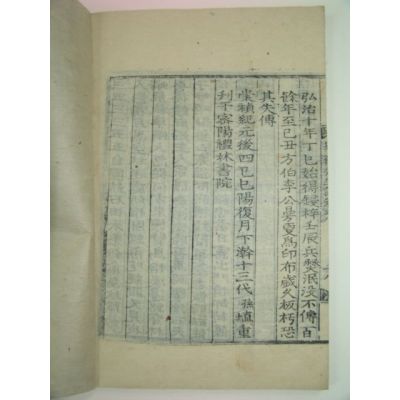 弘治十年丁巳始得鋟梓壬辰兵燹泯沒不傳百
餘年至己丑方伯李公夏爲印布歲久板朽恐
其失傳
崇禎紀元後四己巳陽復月下澣十三代孫重
刊于密陽禮林書院